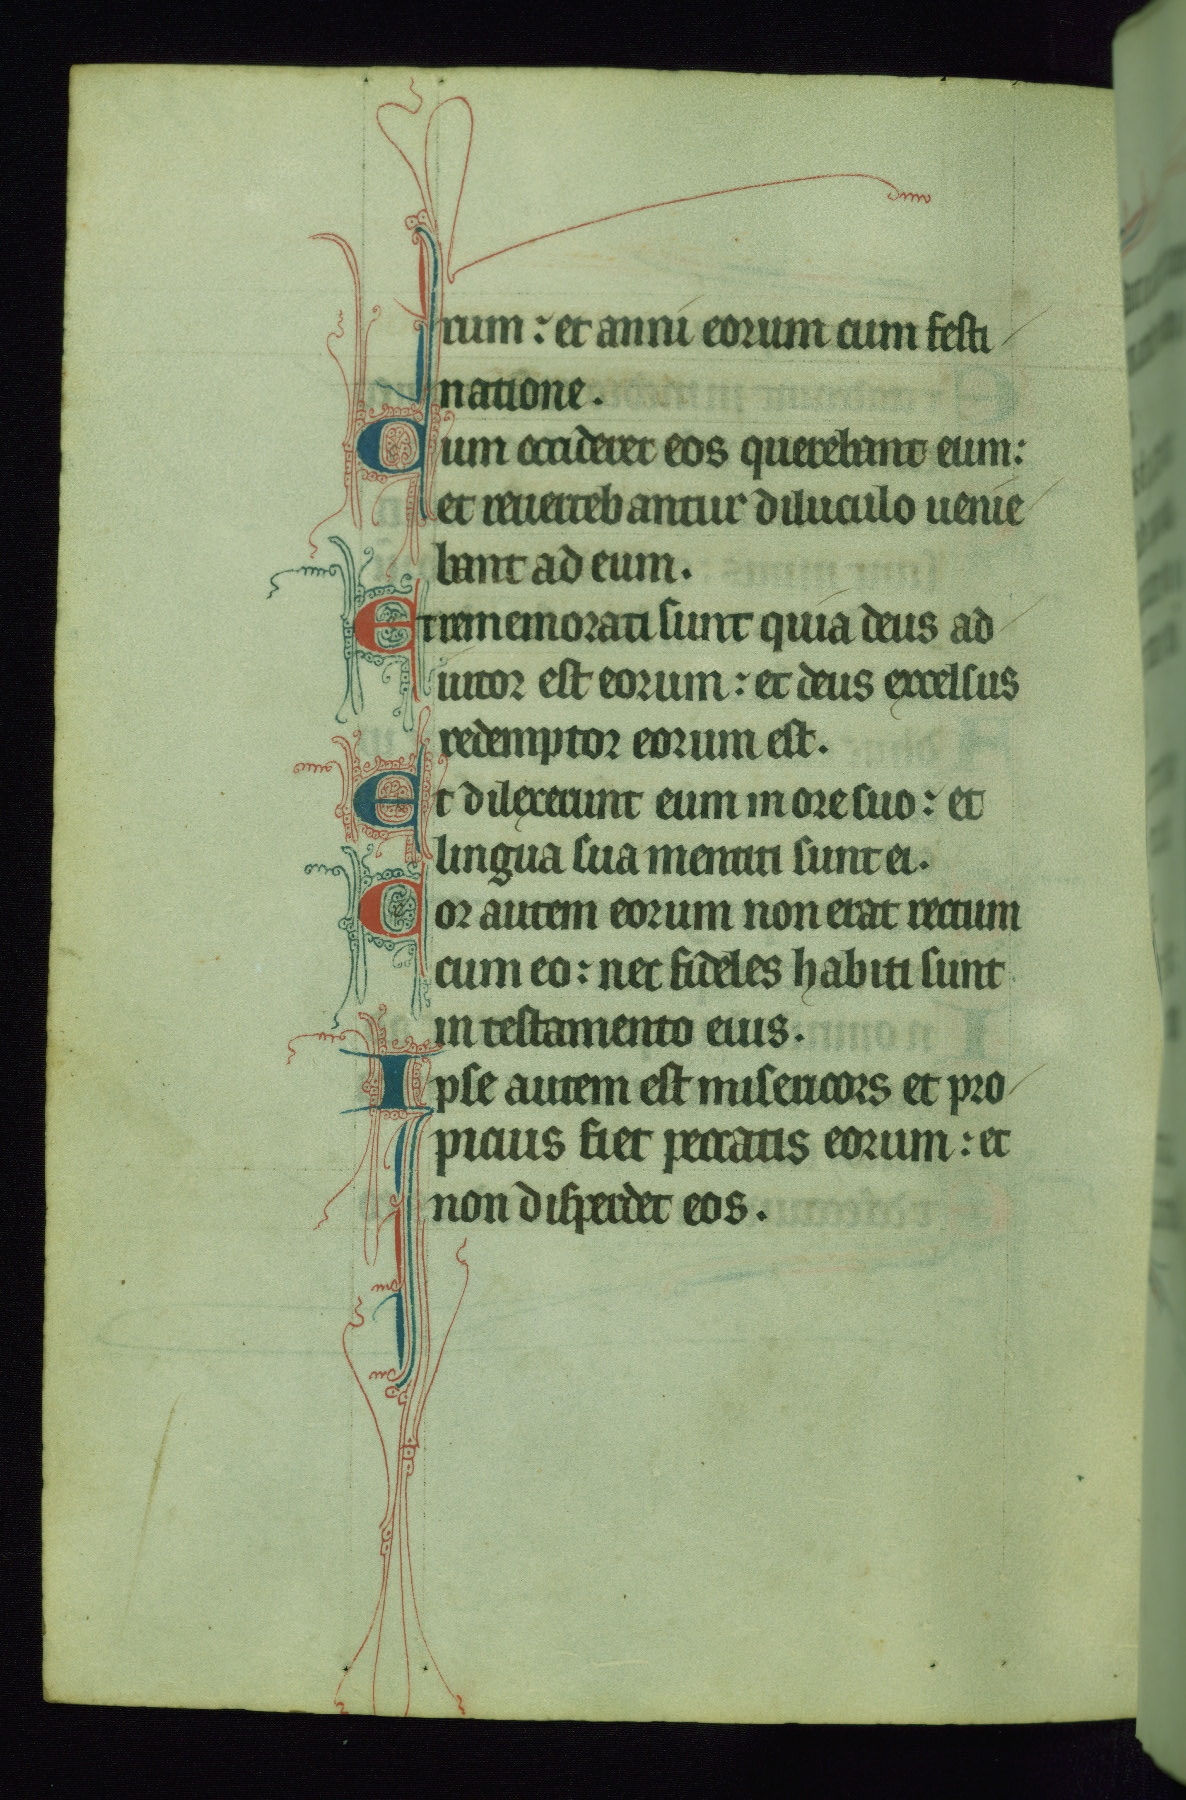 rum : et anni eorum cum festi
natione .
Cum occideret eos querebant eum :
et reuertebantur diluculo uenie
bant ad eum .
Et rememorati sunt quia deus ad
iutor est eorum : et deus excelsus
redemptor eorum est .
Et dilexerunt eum in ore suo : et
lingua sua mentiti sunt ei .
Cor autem eorum non erat rectum
cum eo : nec fideles habiti sunt
in testamento eius .
Ipse autem est misericors et pro
picius fiet peccatis eorum : et
non disperdet eos .